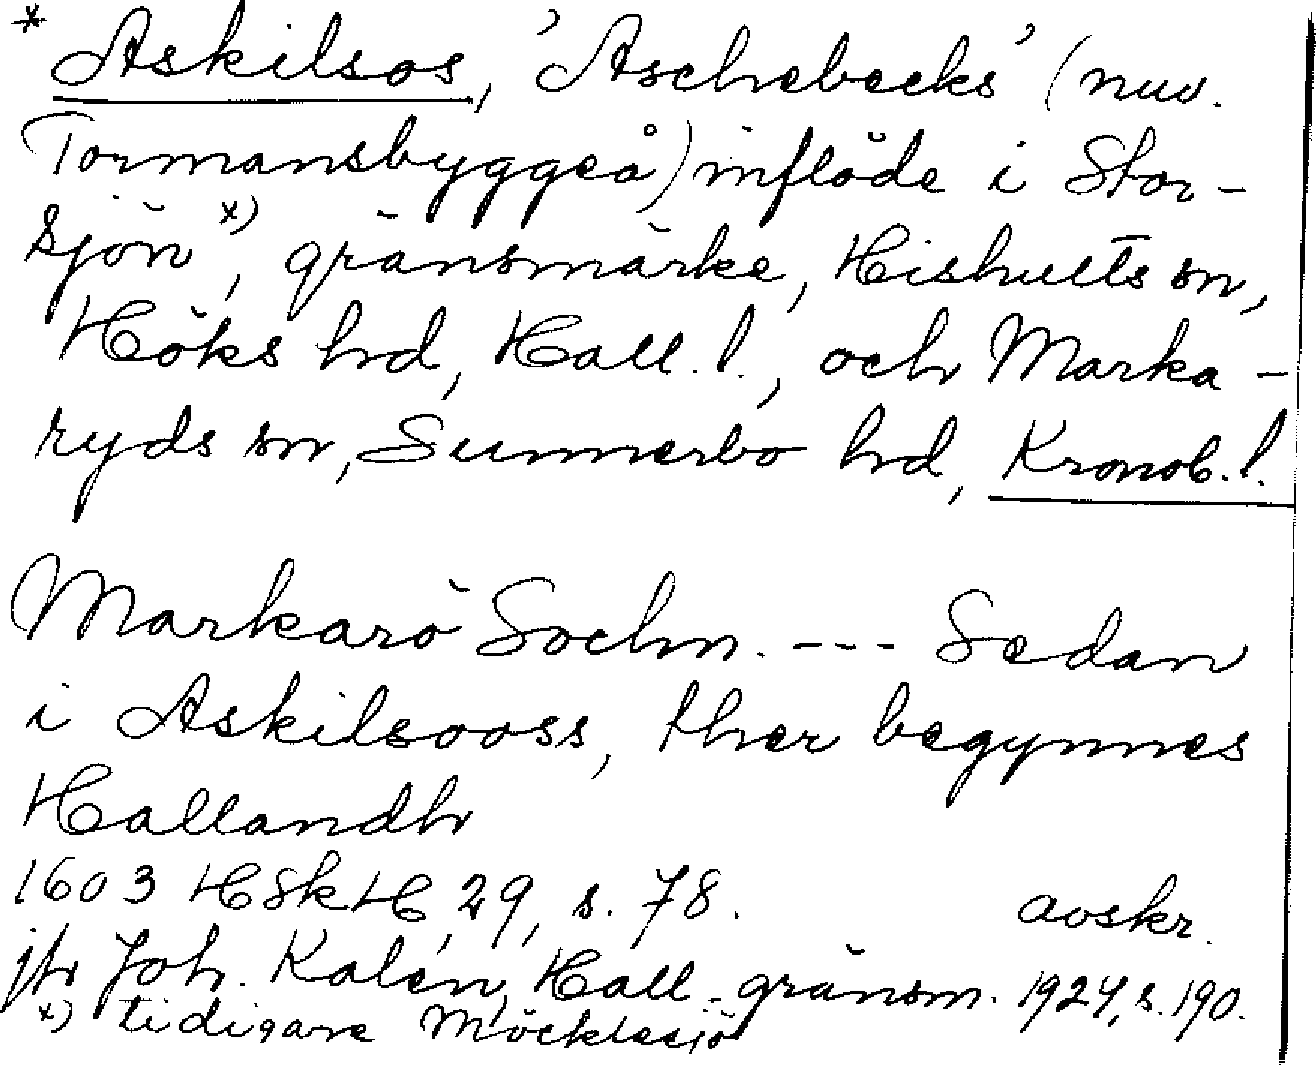 * Askilsos, 'Aschebecks' (nuv.
Tormansbyggeå) inflöde i Stor-
sjön x), gränsmärke, Hishults sn,
Höks hd, Hall. l., och Marka-
ryds sn, Sunnerbo hd, Kronob. l.
Markarö Sochn. --- Sedan
i Askilsooss, ther begynnes
Hallandh
1603 HSkH, 29, s. 78. avskr.
jfr Joh. Kalén, Hall. gränsm. 1924, s. 190.
x) tidigare Möcklesjö